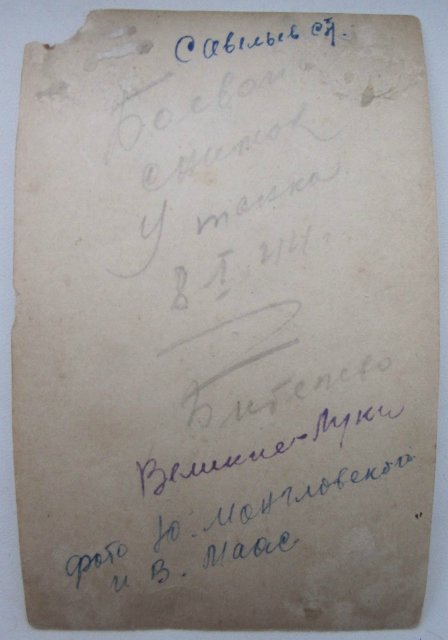 Савельев ст.
Боевой
снимок
У танка
8 I 44.
Великие-Луки
фото Ю. Монгловской
и В. Маас